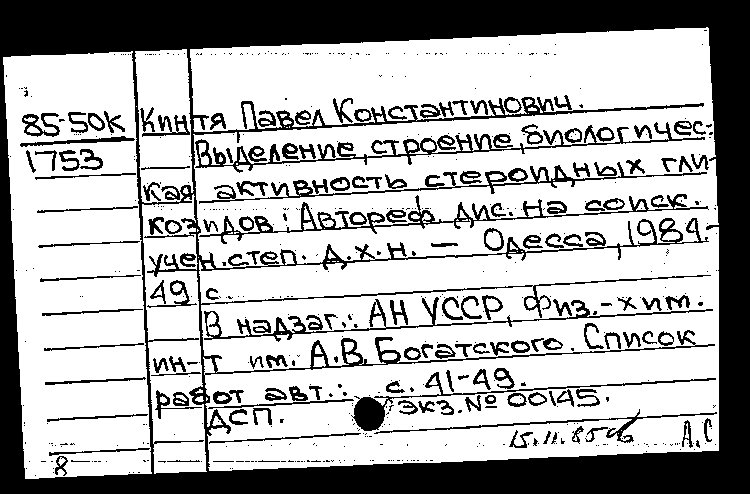 85-50К Кинтя, Павел Константинович.
1753 Выделение, строение, биологичес-
кая активность стероидных гли-
козидов: Автореф. дис. на соиск.
учен. степ. д.х.н. — Одесса, 1984.-
49 с.
В надзаг.: АН УССР, Физ.-хим.
ин-т им. А.В. Богатского. Список
работ авт.: с. 41-49.
ДСП. Экз. № 00145.
15.11.85 А.С
8